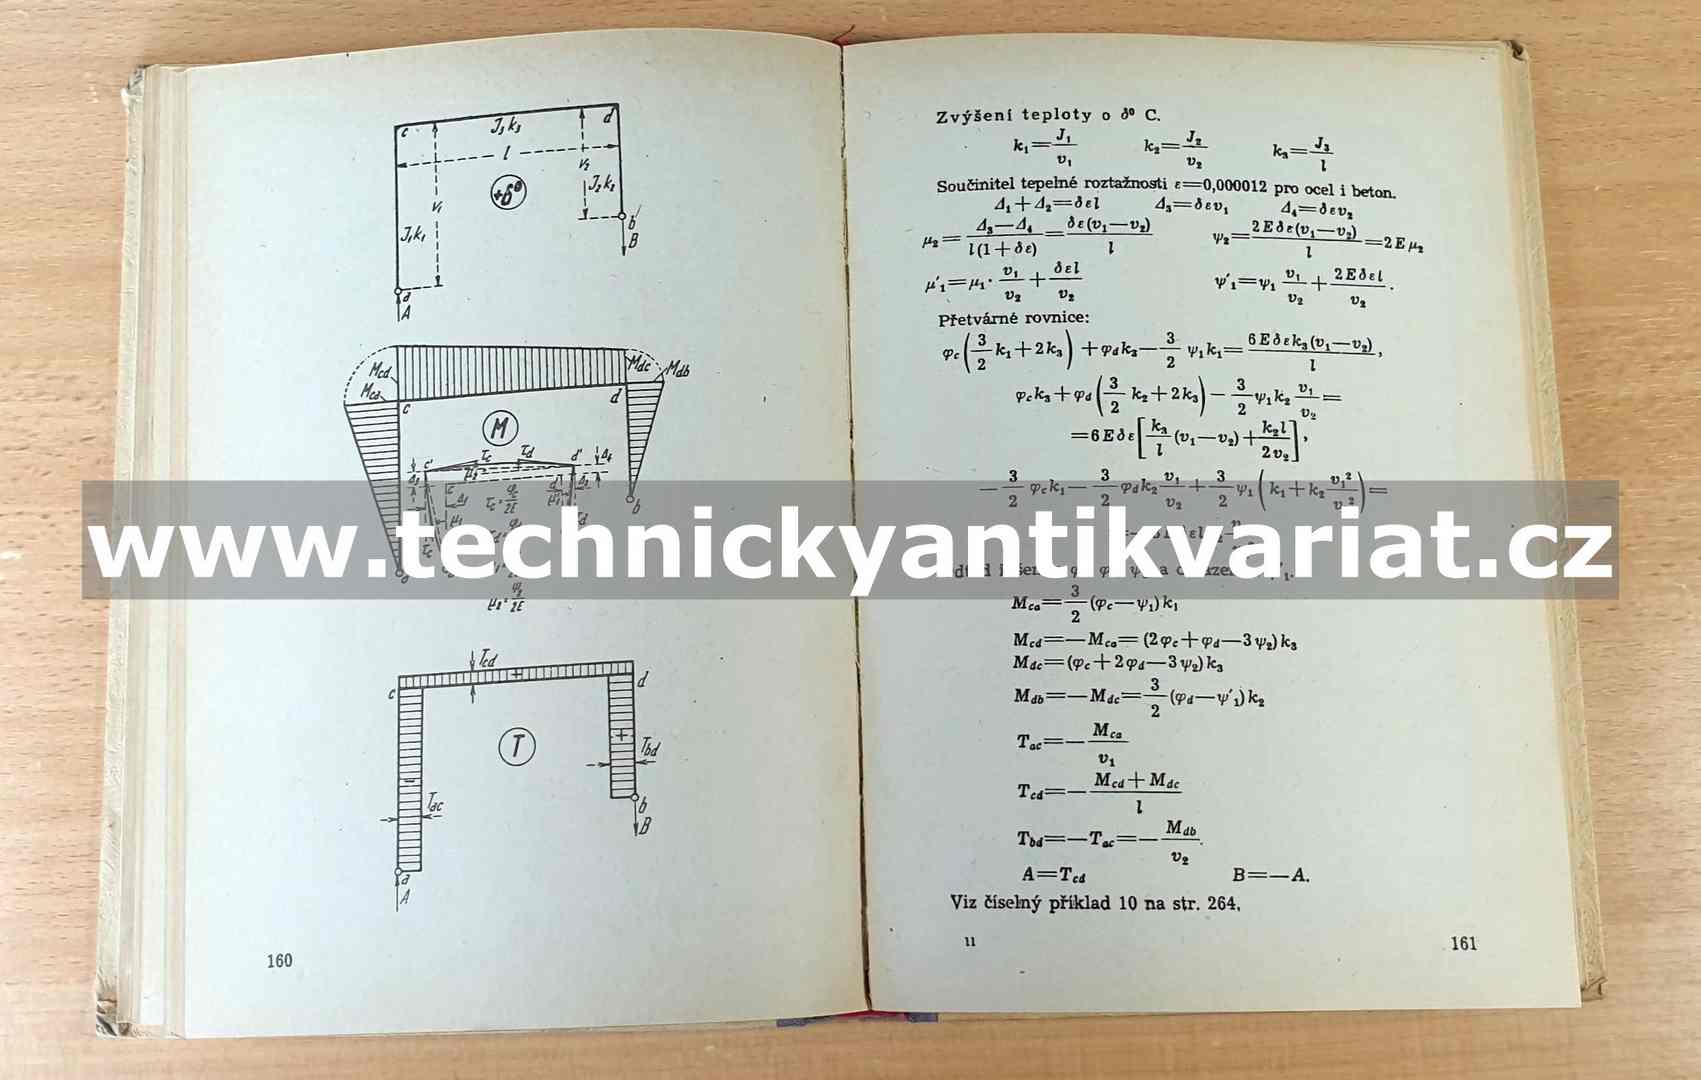 c
J₃ k₃
d
l
v₁
v₂
+δ°
J₂ k₂
J₁ k₁
b
B
d
A
M_cd
M_ca
M_dc
M_db
c
d
M
c' τ_c τ_d d' Δ₄
b
μ₂ = ψ₂/2E
T_cd
c
d
T
T_bd
T_ac
b
B
a
A
160
www.technickyantikvariat.cz
Zvýšení teploty o δ⁰ C.
k₁ = J₁/v₁ k₂ = J₂/v₂ k₃ = J₃/l
Součinitel tepelné roztažnosti ε=0,000012 pro ocel i beton.
Δ₁ + Δ₂ = δεl Δ₃ = δεv₁ Δ₄ = δεv₂
μ₂ = (Δ₃ — Δ₄)/(l(1 + δε)) = δε(v₁ — v₂)/l ψ₂ = 2Eδε(v₁ — v₂)/l = 2Eμ₂
μ′₁ = μ₁ · v₁/v₂ + δεl/v₂ ψ′₁ = ψ₁ v₁/v₂ + 2Eδεl/v₂ .
Přetvárné rovnice:
φ_c (3/2 k₁ + 2k₃) + φ_d k₃ — 3/2 ψ₁k₁ = 6Eδεk₃(v₁ — v₂)/l ,
φ_c k₃ + φ_d (3/2 k₂ + 2k₃) — 3/2 ψ₁k₂ v₁/v₂ =
= 6Eδε [k₃/l (v₁ — v₂) + k₂l/2v₂] ,
— 3/2 φ_c k₁ — 3/2 φ_d k₂ v₁/v₂ + 3/2 ψ₁ (k₁ + k₂ v₁²/v₂²) =
M_ca = 3/2 (φ_c — ψ₁) k₁
M_cd = — M_ca = (2φ_c + φ_d — 3ψ₂) k₃
M_dc = (φ_c + 2φ_d — 3ψ₂) k₃
M_db = — M_dc = 3/2 (φ_d — ψ′₁) k₂
T_ac = — M_ca/v₁
T_cd = — (M_cd + M_dc)/l
T_bd = — T_ac = — M_db/v₂.
A = T_cd B = — A.
Viz číselný příklad 10 na str. 264,
11
161